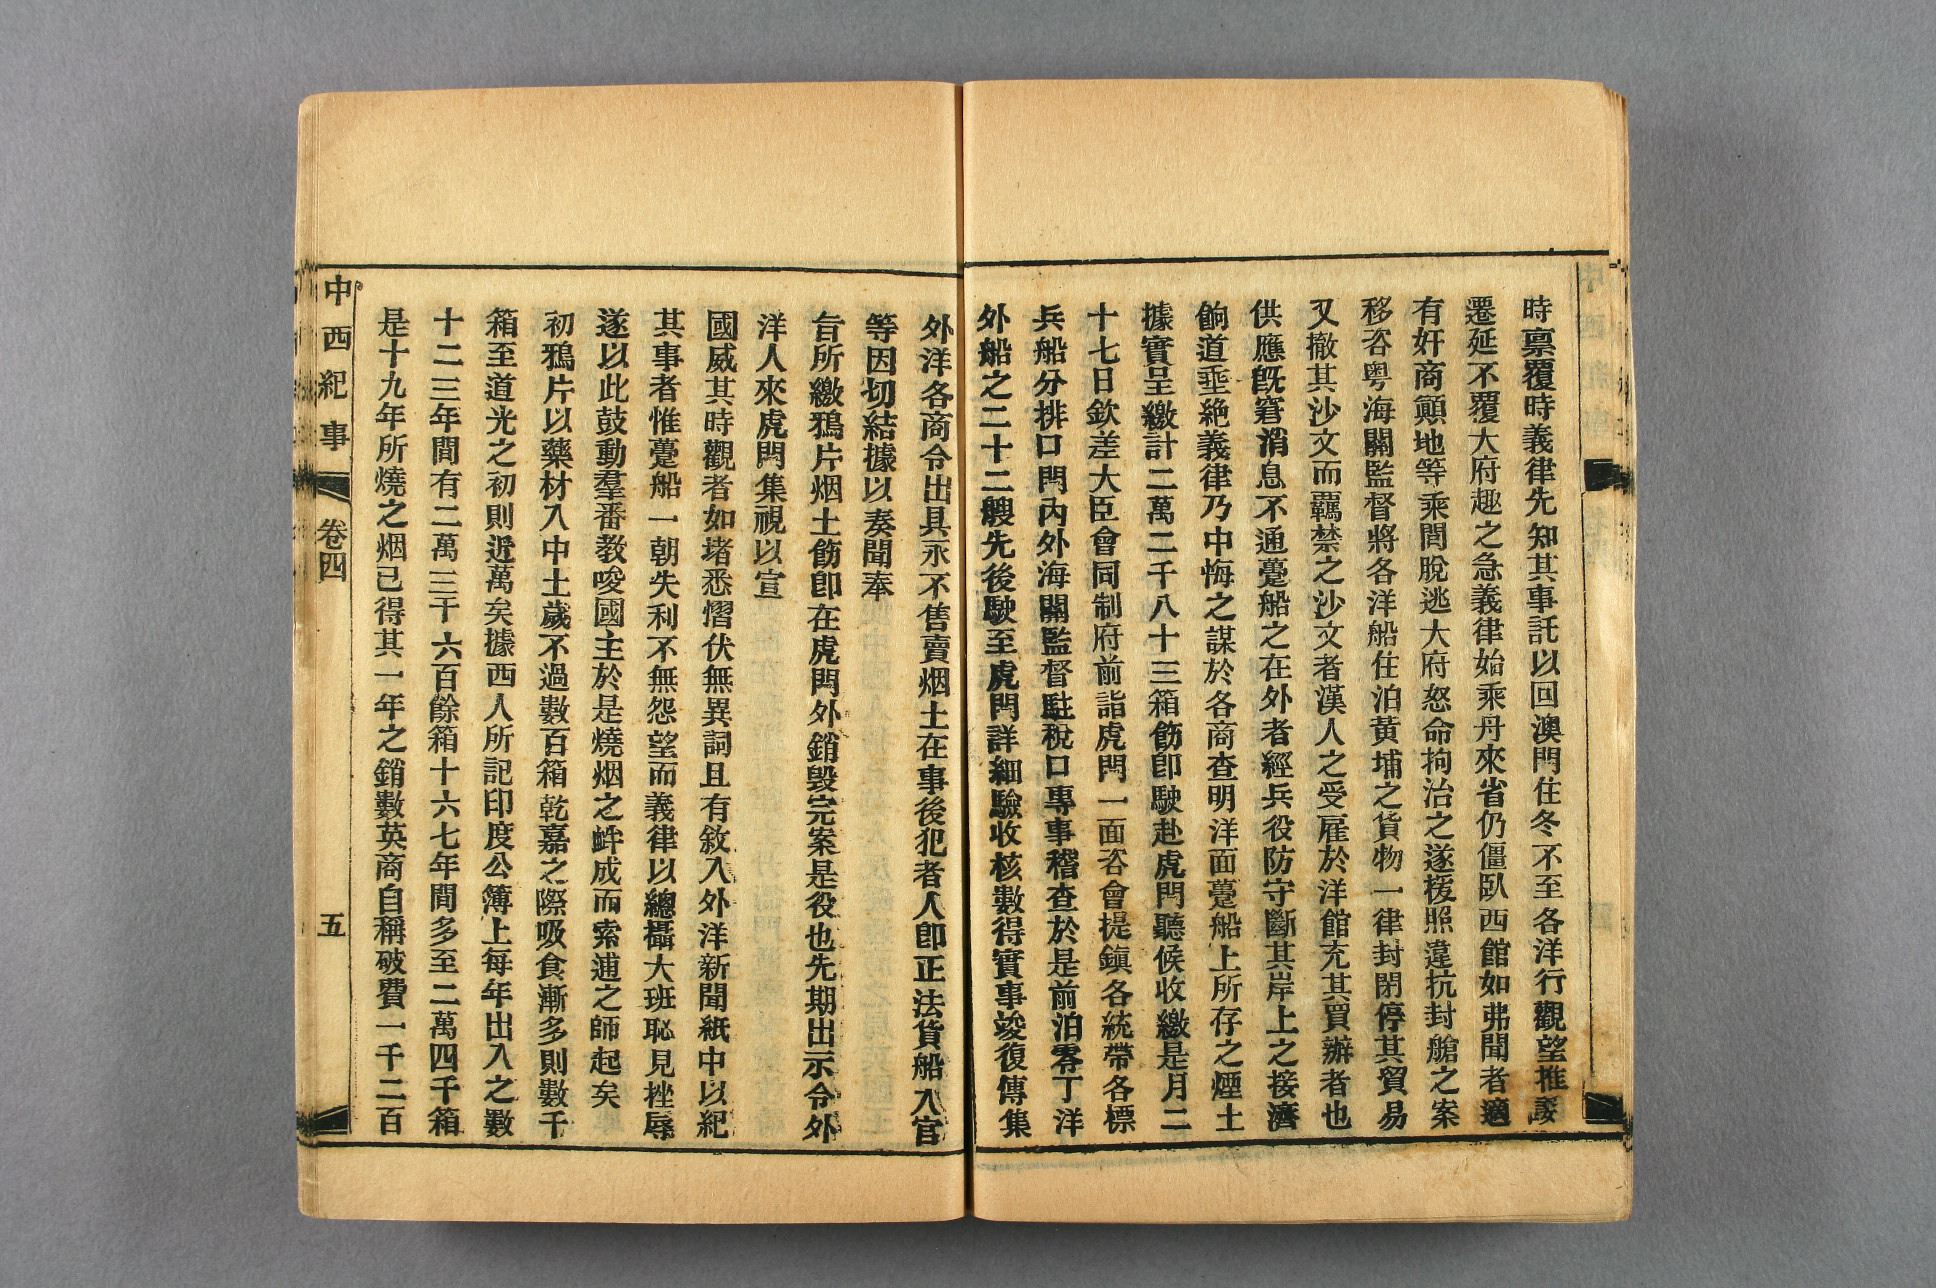 時稟覆時義律先知其事託以回澳門住冬不至各洋行觀望推諉
遷延不覆大府趣之急義律始乘舟來省仍僵臥西館如弗聞者適
有奸商顚地等乘間脫逃大府怒命拘治之遂援照違抗封艙之案
移咨粤海關監督將各洋船住泊黃埔之貨物一律封閉停其貿易
又撤其沙文而羈禁之沙文者漢人之受雇於洋館充其買辦者也
供應旣窘消息不通躉船之在外者經兵役防守斷其岸上之接濟
餉道垂絶義律乃中悔之謀於各商查明洋面躉船上所存之煙土
據實呈繳計二萬二千八十三箱飭卽駛赴虎門聽候收繳是月二
十七日欽差大臣會同制府前詣虎門一面咨會提鎮各統帶各標
兵船分排口門內外海關監督駐稅口專事稽查於是前泊零丁洋
外船之二十二艘先後駛至虎門詳細驗收核數得實事竣復傳集
外洋各商令出具永不售賣烟土在事後犯者人卽正法貨船入官
等因切結據以奏聞奉
旨所繳鴉片烟土飭卽在虎門外銷毀完案是役也先期出示令外
洋人來虎門集視以宣
國威其時觀者如堵悉慴伏無異詞且有敘入外洋新聞紙中以紀
其事者惟躉船一朝失利不無怨望而義律以總攝大班恥見挫辱
遂以此鼓動羣番教唆國主於是燒烟之衅成而索逋之師起矣
初鴉片以藥材入中土歲不過數百箱乾嘉之際吸食漸多則數千
箱至道光之初則近萬矣據西人所記印度公簿上每年出入之數
十二三年間有二萬三千六百餘箱十六七年間多至二萬四千箱
是十九年所燒之烟已得其一年之銷數英商自稱破費一千二百
中西紀事
卷四
五